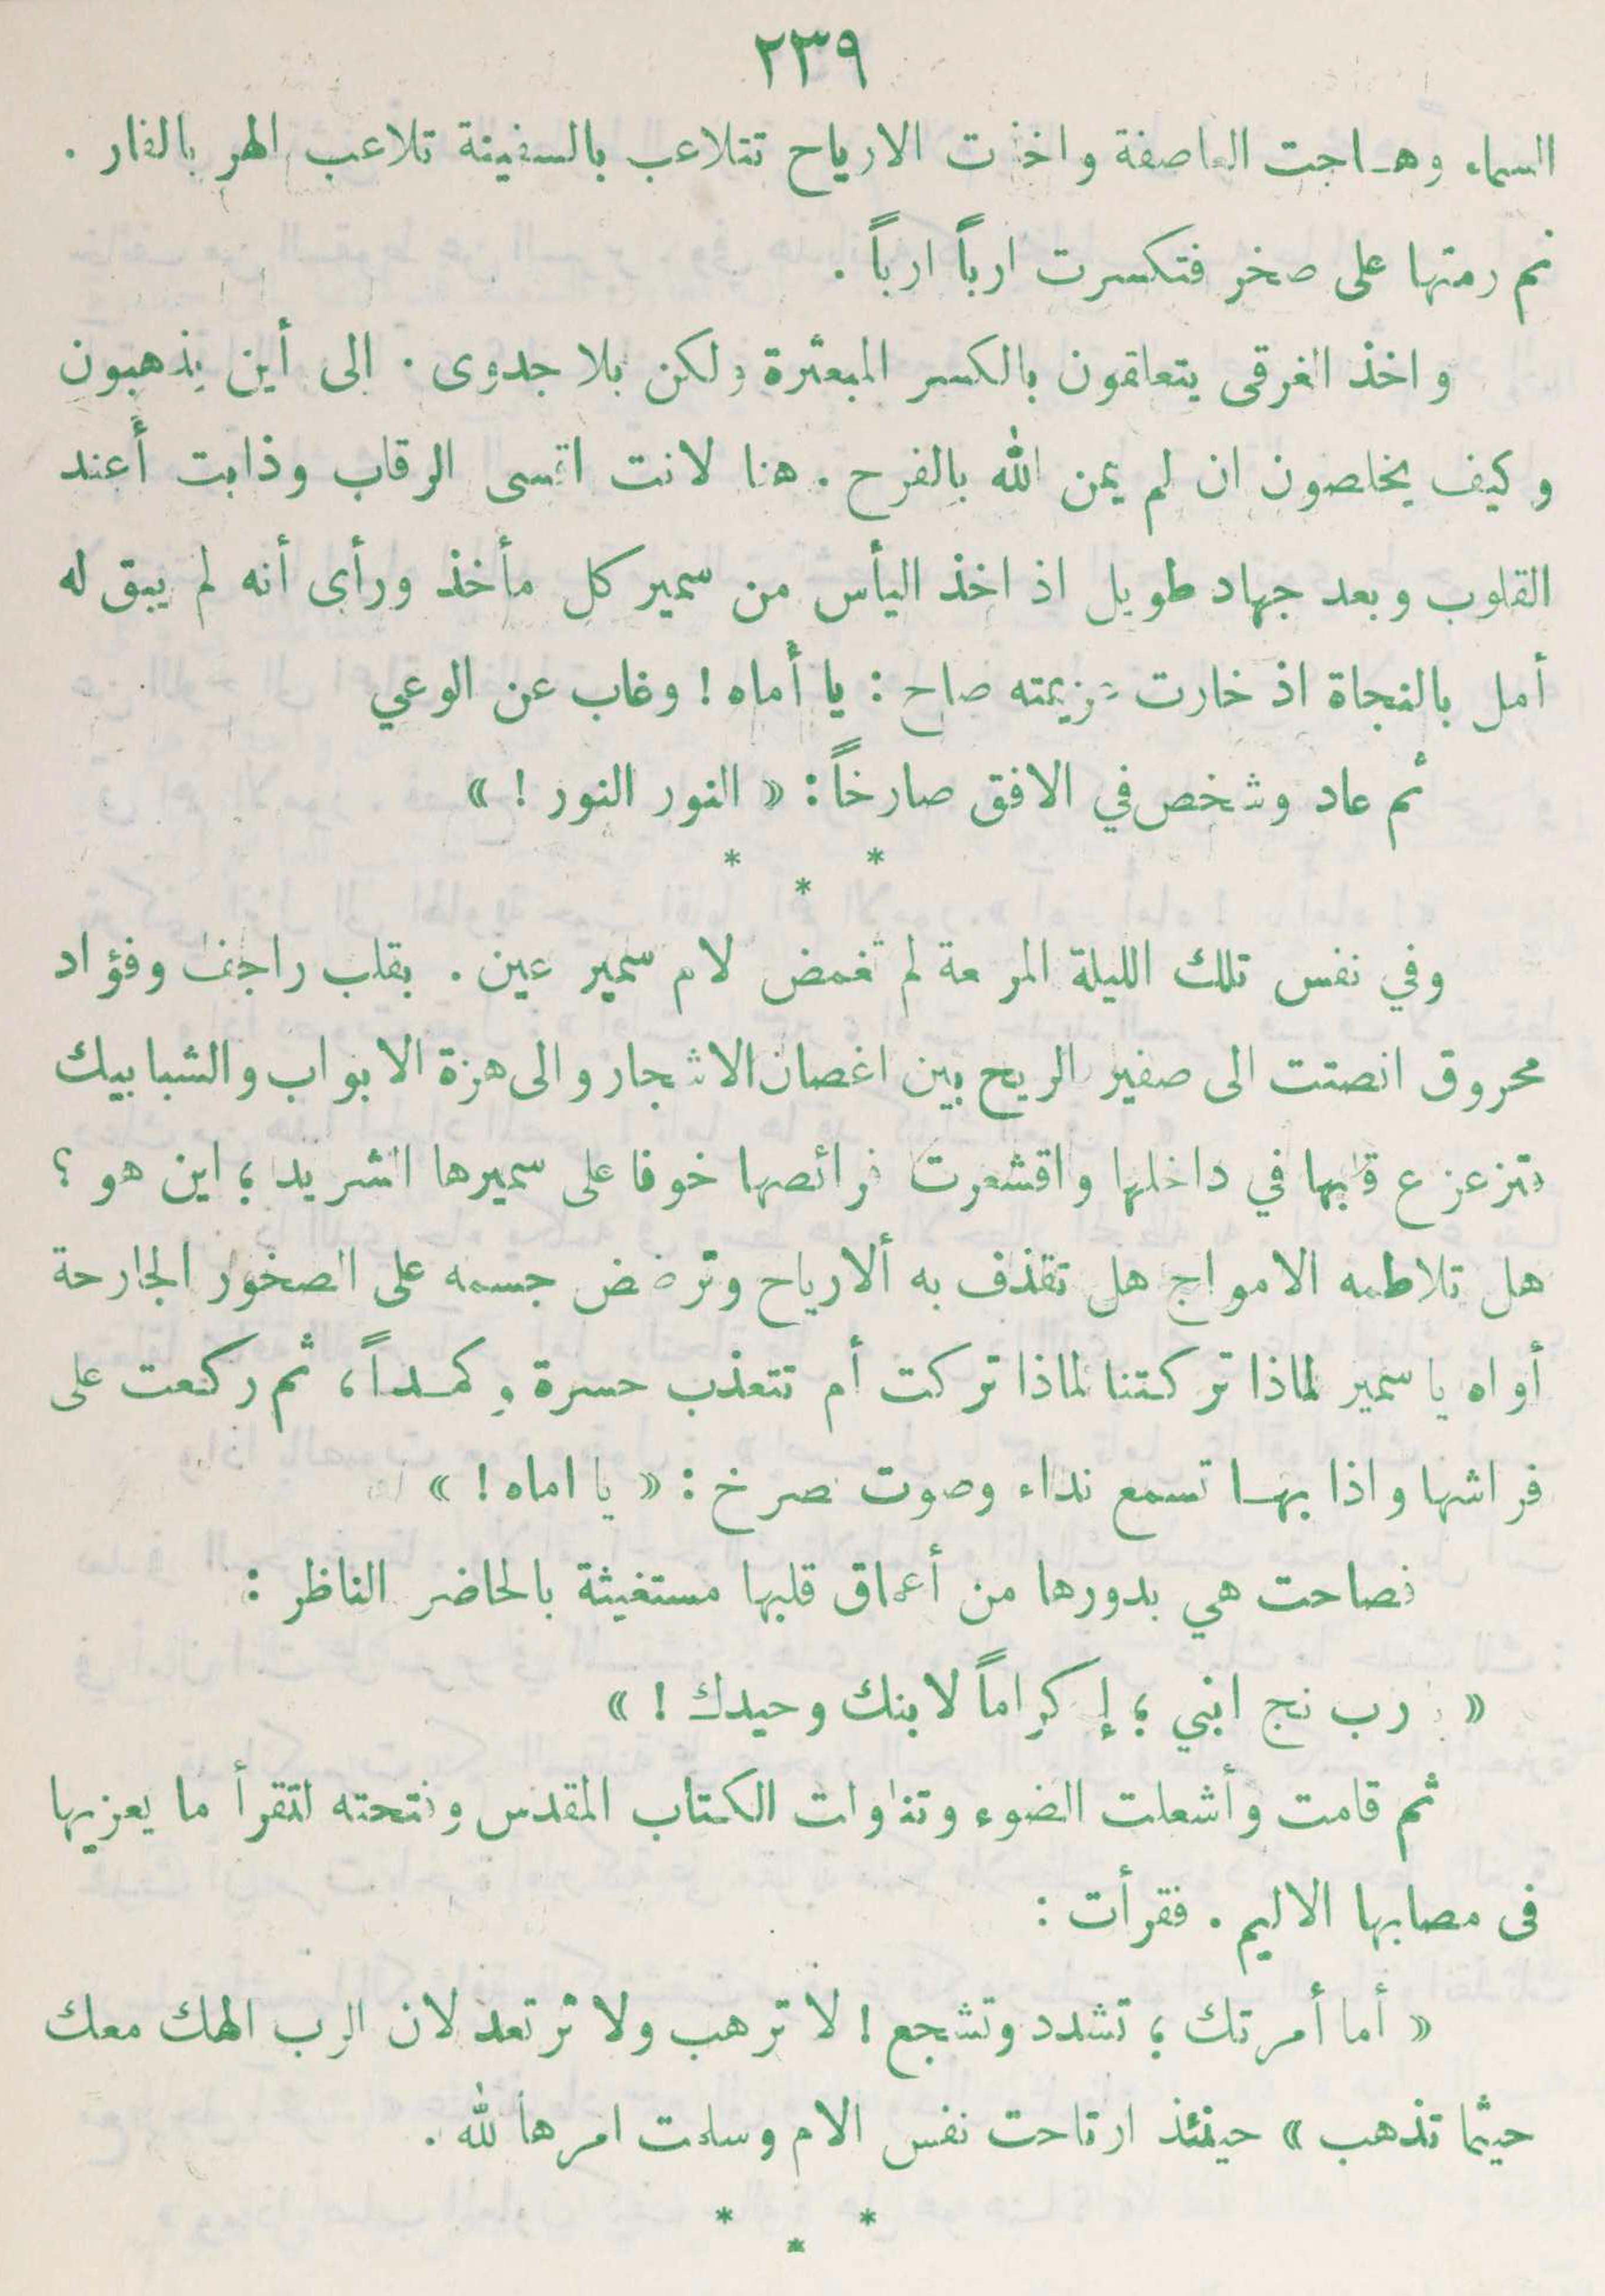 ٢٣٩
السماء وهاجت العاصفة واخذت الارياح تتلاعب بالسفينة تلاعب الهر بالفار .
ثم رمتها على صخر فتكسرت ارباً ارباً .
واخذ الغرقى يتعلقون بالكسر المبعثرة ولكن بلا جدوى . الى أين يذهبون
وكيف يخلصون ان لم يمن الله بالفرح . هنا لانت اقسى الرقاب وذابت أعند
القلوب وبعد جهاد طويل اذ اخذ اليأس من سمير كل مأخذ ورأى أنه لم يبق له
أمل بالنجاة اذ خارت عزيمته صاح : يا أماه ! وغاب عن الوعي
ثم عاد وشخص في الافق صارخاً : « النور النور ! »
* * *
وفي نفس تلك الليلة المرعة لم تغمض لام سمير عين . بقلب راجف وفؤاد
محروق انصتت الى صفير الريح بين اغصان الاشجار والى هزة الابواب والشبابيك
فتزعزع قلبها في داخلها واقشعرت فرائصها خوفا على سميرها الشريد ؛ اين هو ؟
هل تلاطمه الامواج هل تقذف به ألارياح وترضض جسمه على الصخور الجارحة
أواه يا سمير لماذا تركتنا لماذا تركت أم تتعذب حسرة وكمداً ، ثم ركعت على
فراشها واذا بها تسمع نداء وصوت صرخ : « يا اماه ! »
فصاحت هي بدورها من أعماق قلبها مستغيثة بالحاضر الناظر :
« رب نج ابني ؛ إكراماً لابنك وحيدك ! »
ثم قامت وأشعلت الضوء وتناولت الكتاب المقدس وفتحته لتقرأ ما يعزيها
فى مصابها الاليم . فقرأت :
« أما أمرتك ؛ تشدد وتشجع ! لا ترهب ولا ترتعد لان الرب الهك معك
حيثما تذهب » حينئذ ارتاحت نفس الام وسلمت امرها لله .
* * *